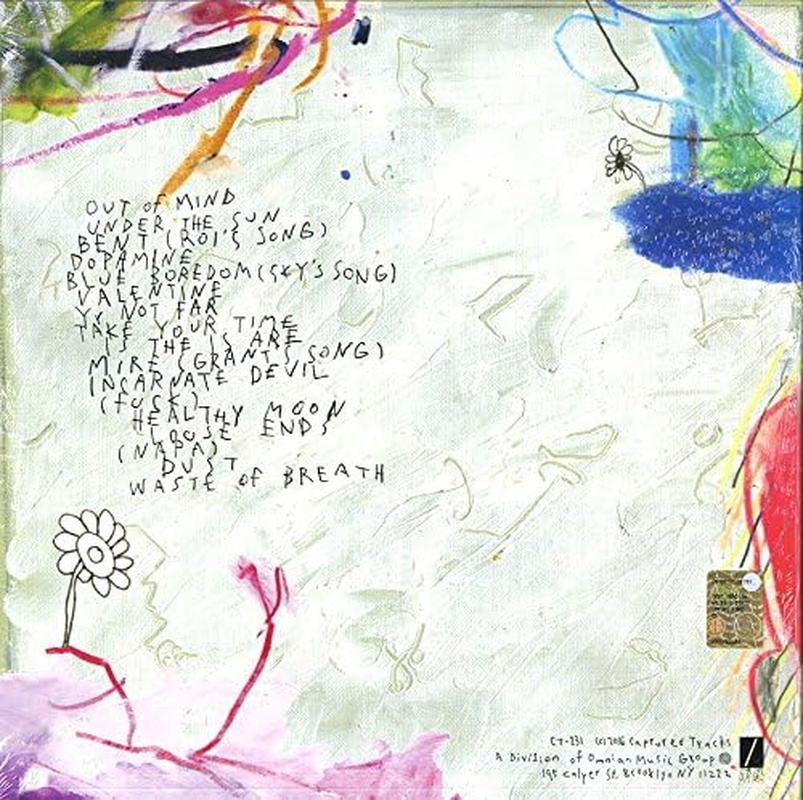 OUT of MIND
UNDER THE SUN
BENT (ROI'S SONG)
DOPAMINE
BLUE BOREDOM (SKY'S SONG)
VALENTINE
YR NOT FAR
TAKE YOUR TIME
IS THE IS ARE
MIRE (GRANT'S SONG)
INCARNATE DEVIL
(fUCK)
HEALTHY MOON
LOOSE ENDS
(NAPA)
DUST
WASTE OF BREATH
CT-231 (c) 2016 Captured Tracks
A Division of Omnian Music Group
195 Calyer St. Brooklyn NY 11222